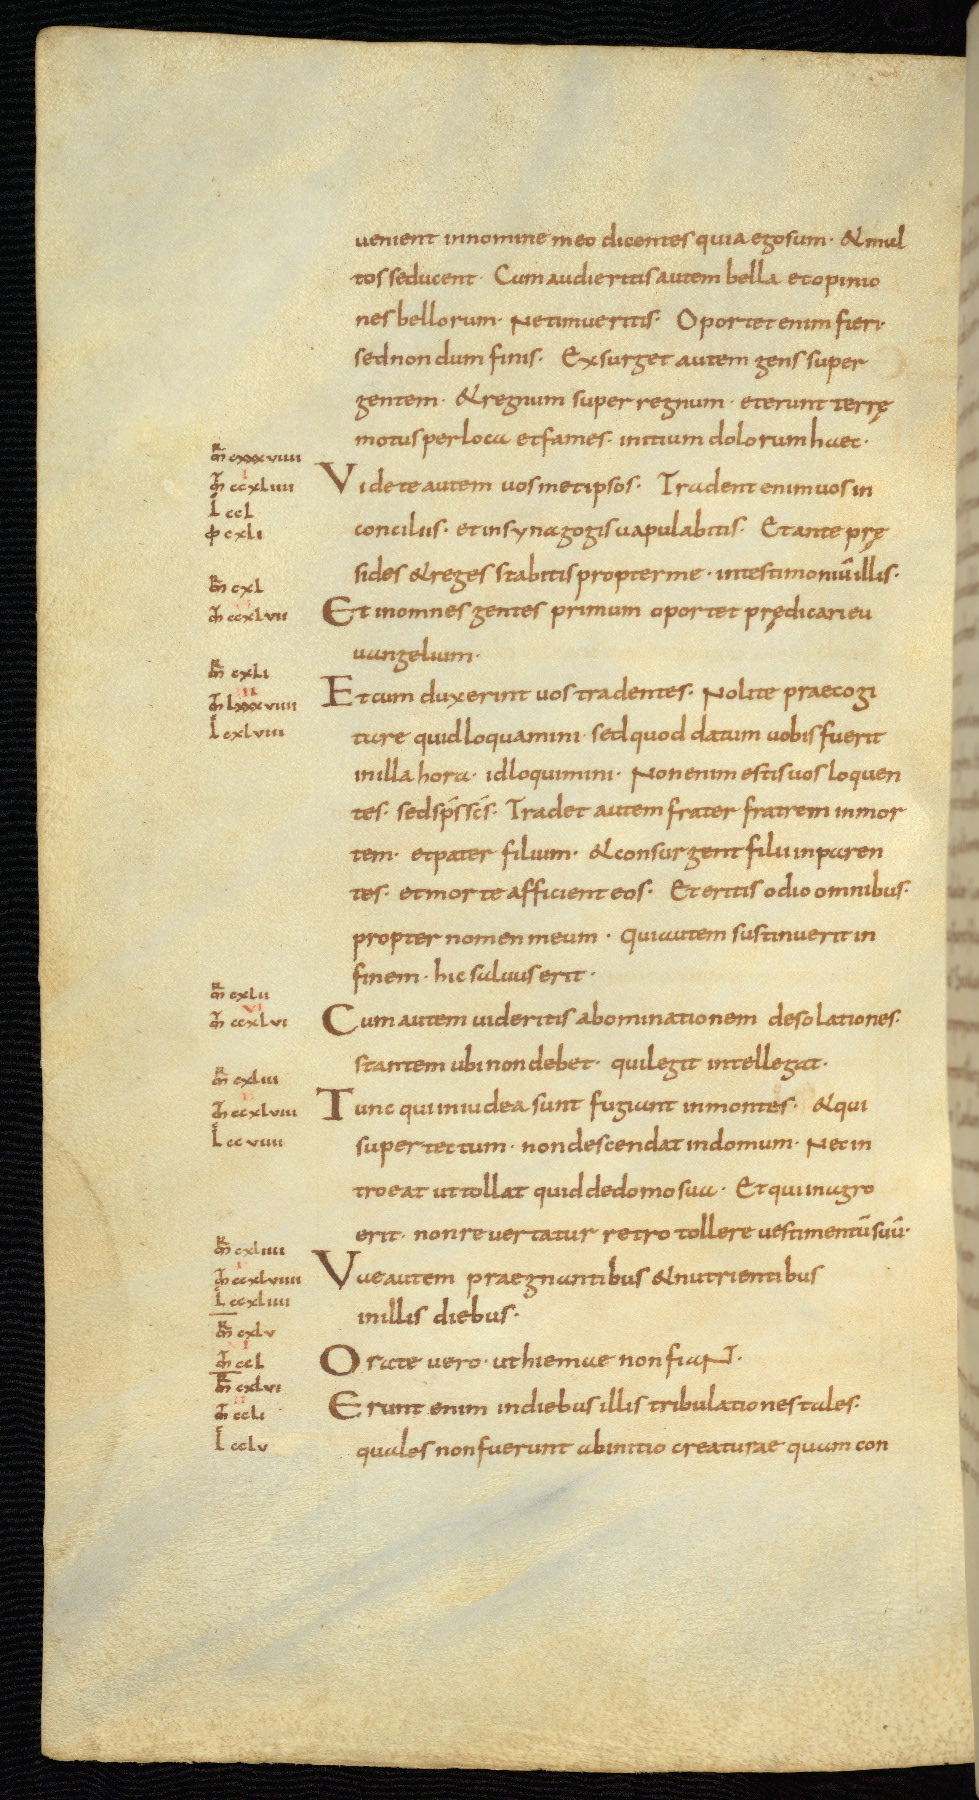 uenient innomine meo dicentes quia egosum· & mul
tos seducent· Cum audieritis autem bella et opinio
nes bellorum· Ne timueritis· Oportet enim fieri·
sed nondum finis· Exsurget autem gens super
gentem· & regnum super regnum· et erunt terrę
motus per loca et fames· initium dolorum haec·
cxxxviiii
ccxliiii
Videte autem uosmetipsos· Tradent enim uos in
ccl
cxli
conciliis· et in synagogis uapulabitis· Et ante prę
sides & reges stabitis propter me· in testimoniū illis·
cxl
ccxlvii
Et in omnes gentes primum oportet prędicari eu
uangelium·
cxli
lxxxviiii
Et cum duxerint uos tradentes· Nolite praecogi
cxlviii
tare quid loquamini· sed quod datum uobis fuerit
in illa hora· id loquimini· Non enim estis uos loquen
tes· sed sp̄s sc̄s· Tradet autem frater fratrem in mor
tem· et pater filium· & consurgent filii in paren
tes· et morte afficient eos· Et eritis odio omnibus·
propter nomen meum· qui autem sustinuerit in
finem· hic saluus erit·
cxlii
ccxlvi
Cum autem uideritis abominationem desolationes·
stantem ubi non debet· qui legit intellegat·
cxliii
ccxlviii
Tunc qui in iudea sunt fugiant in montes· & qui
ccviiii
super tectum· non descendat in domum· Nec in
troeat ut tollat quid de domo sua· Et qui in agro
erit· non reuertatur retro tollere uestimentū suū·
cxliiii
ccxlviiii
Vae autem praegnantibus & nutrientibus
ccxliiii
in illis diebus·
cxlv
ccl
Orate uero· ut hiemae non fiant·
cxlvi
ccli
Erunt enim in diebus illis tribulationes tales·
cclv
quales non fuerunt ab initio creaturae quam con